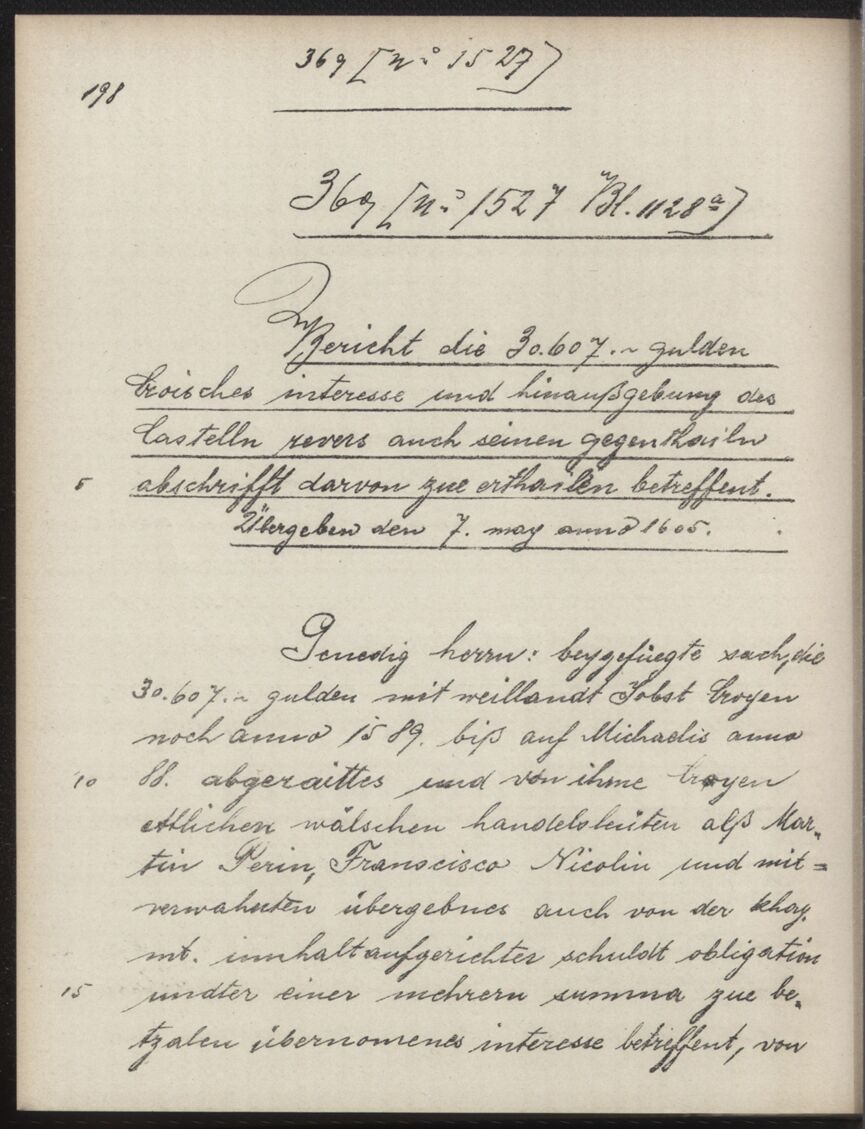 369 [n° 1527]
198
369 [n° 1527 Bl. 1128a]
Bericht die 30.607.~ gulden
Croisches interesse und hinaußgebung des
Castelln revers auch seinen gegenthailn
5 abschrifft darvon zue erthailen betreffent.
Übergeben den 7. may anno 1605.
Genedig herrn: beygefüegte sach, die
30.607.~ gulden mit weillandt Jobst Croyen
noch anno 1589. biß auf Michaelis anno
10 88. abgeraittes und von ihme Croyen
ettlichen wälschen handelsleüten alß Mar-
tin Perin, Franscisco Nicolin und mit=
verwahnten übergebnes auch von der khay.
mt. innhalt aufgerichter schuldt obligation
15 undter einer mehrern summa zue be-
tzalen übernomenes interesse betreffent, von